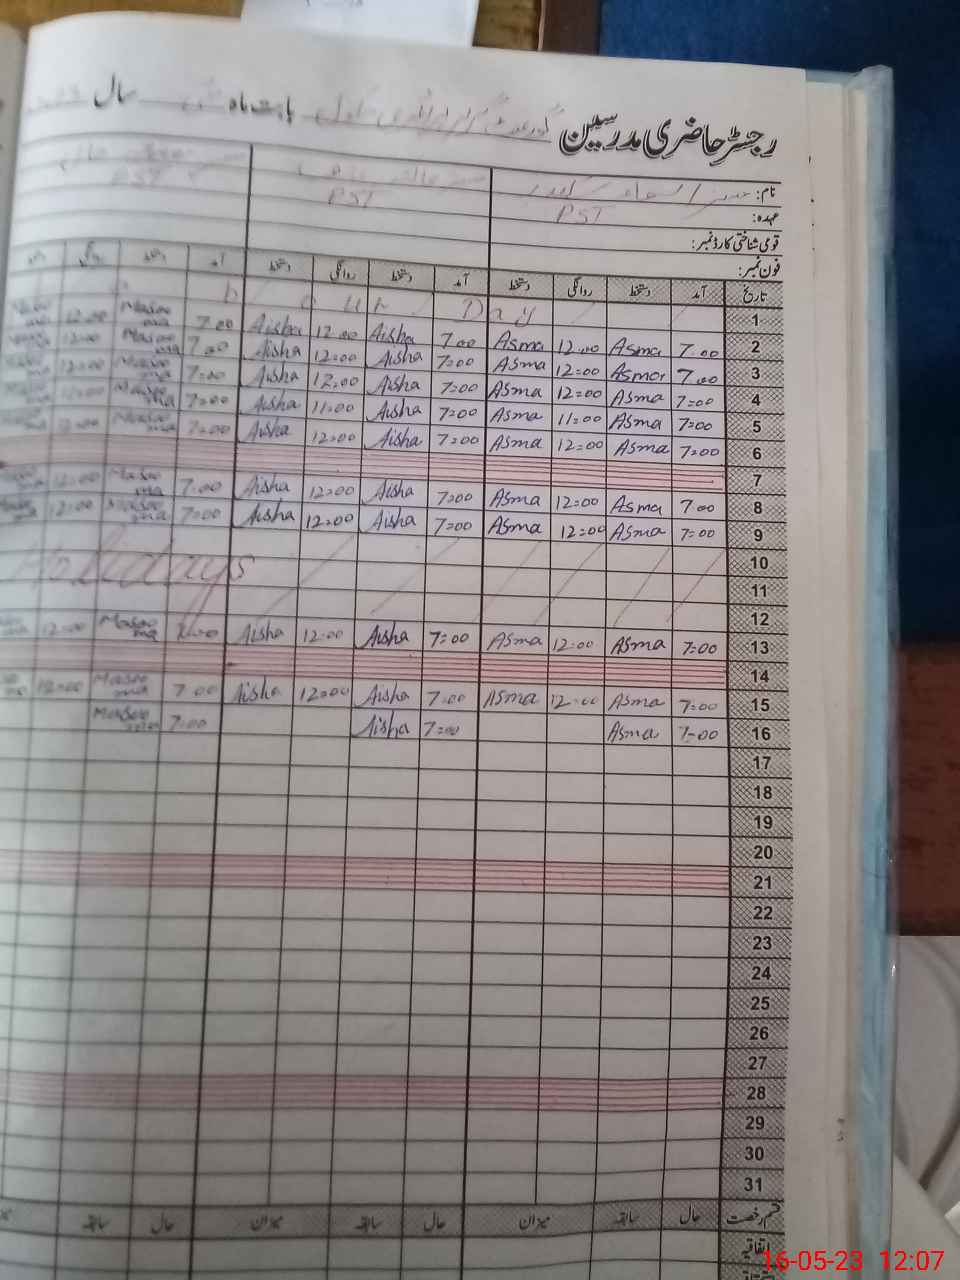 رجسٹر حاضری مدرسین گورنمنٹ گرلز پرائمری سکول بابت ماہ مئی سال
نام:
عہدہ: PST PST PST
قومی شناختی کارڈ نمبر:
فون نمبر:
تاریخ آمد دستخط روانگی دستخط آمد دستخط روانگی دستخط آمد دستخط روانگی
1 Labour Day
2 7.00 Asma 12.00 Asma 7.00 Aisha 12.00 Aisha 7.00 Masooma 12.00
3 7.00 Asma 12:00 Asma 7:00 Aisha 12:00 Aisha 7.00 Masooma 12:00
4 7:00 Asma 12:00 Asma 7:00 Aisha 12:00 Aisha 7:00 Masooma 12:00
5 7:00 Asma 11:00 Asma 7:00 Aisha 11:00 Aisha 7:00 Masooma
6 7:00 Asma 12:00 Asma 7:00 Aisha 12:00 Aisha 7:00 Masooma 12:00
7
8 7.00 Asma 12:00 Asma 7:00 Aisha 12:00 Aisha 7.00 Masooma 12:00
9 7:00 Asma 12:00 Asma 7:00 Aisha 12:00 Aisha 7:00 Masooma 12:00
10 Holidays
11
12
13 7:00 Asma 12:00 Asma 7:00 Aisha 12:00 Aisha Masooma 12:00
14
15 7:00 Asma 12:00 Asma 7:00 Aisha 12:00 Aisha 7.00 Masooma 12:00
16 7:00 Asma 7:00 Aisha 7:00 Masooma
17
18
19
20
21
22
23
24
25
26
27
28
29
30
31
قسم رخصت حال سابقہ میزان حال سابقہ میزان حال سابقہ
اتفاقیہ
16-05-23 12:07